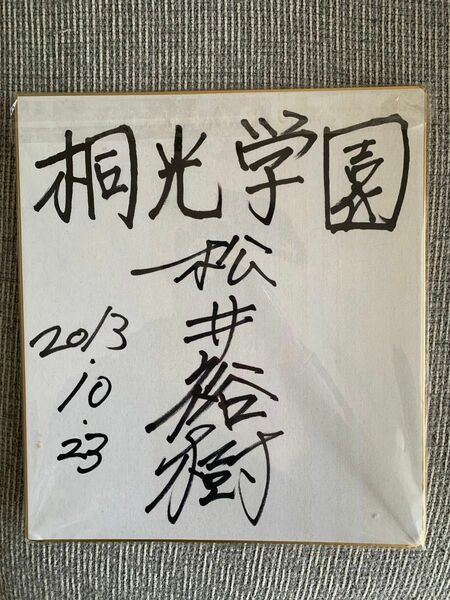 桐光学園
松井裕樹
2013.
10.
23